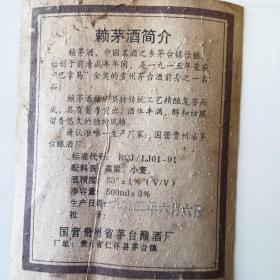 赖茅酒简介
赖茅酒，中国名酒之乡茅台镇佳酿，
始创于前清咸丰年间，是一九一五年荣获
“巴拿马”金奖的贵州茅台酒前身之一名
品。
赖茅酒 传统工艺精酿复客而
成，具有酱香突出，酒体丰满，醇和细腻
留香悠久的独特风格。
请认准唯一生产厂家：国营贵州省茅
台酿酒厂。
标准代号： RQJ/LJ01-91
配料表：高粱、小麦、
酒精度：53°±1%°(V/V)
净容量：500ml±3%
生产日期： 年六月六日
批 号：
国营贵州省茅台酿酒厂
厂址：贵州省仁怀县茅台镇